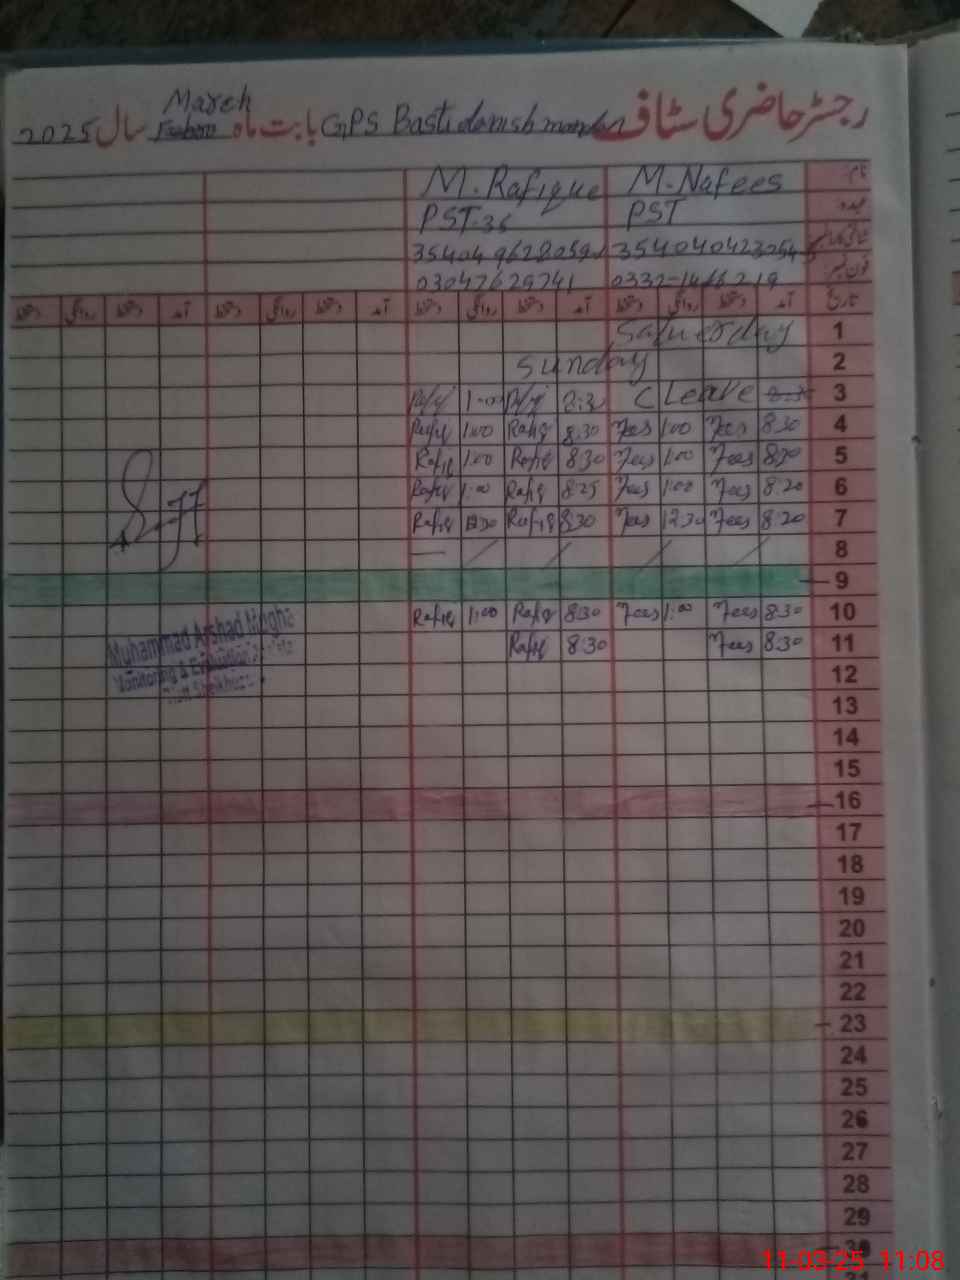 رجسٹر حاضری سٹاف GPS Basti danish mandir بابت ماہ March سال 2025
نام M. Nafees M. Rafique
عہدہ PST PST-35
شناختی کارڈ
فون نمبر 03047629741
تاریخ آمد دستخط روانگی دستخط آمد دستخط روانگی دستخط آمد دستخط روانگی دستخط آمد دستخط روانگی دستخط
1 Saturday
2 Sunday
3 C Leave 1:00
4 8:30 Fees 1:00 Fees 8:30 Rafiq 1:00 Rafiq
5 8:20 Fees 1:00 Fees 8:30 Rafiq 1:00 Rafiq
6 8:20 Fees 1:00 Fees 8:25 Rafiq 1:00 Rafiq
7 8:20 Fees 12:30 Fees 8:30 Rafiq Rafiq
8
9
10 8:30 Fees 1:00 Fees 8:30 Rafiq 1:00 Rafiq
11 8:30 Fees 8:30 Rafiq
Muhammad Arshad
Monitoring & Evaluation
12
13
14
15
16
17
18
19
20
21
22
23
24
25
26
27
28
29
30
11-03-25 11:08